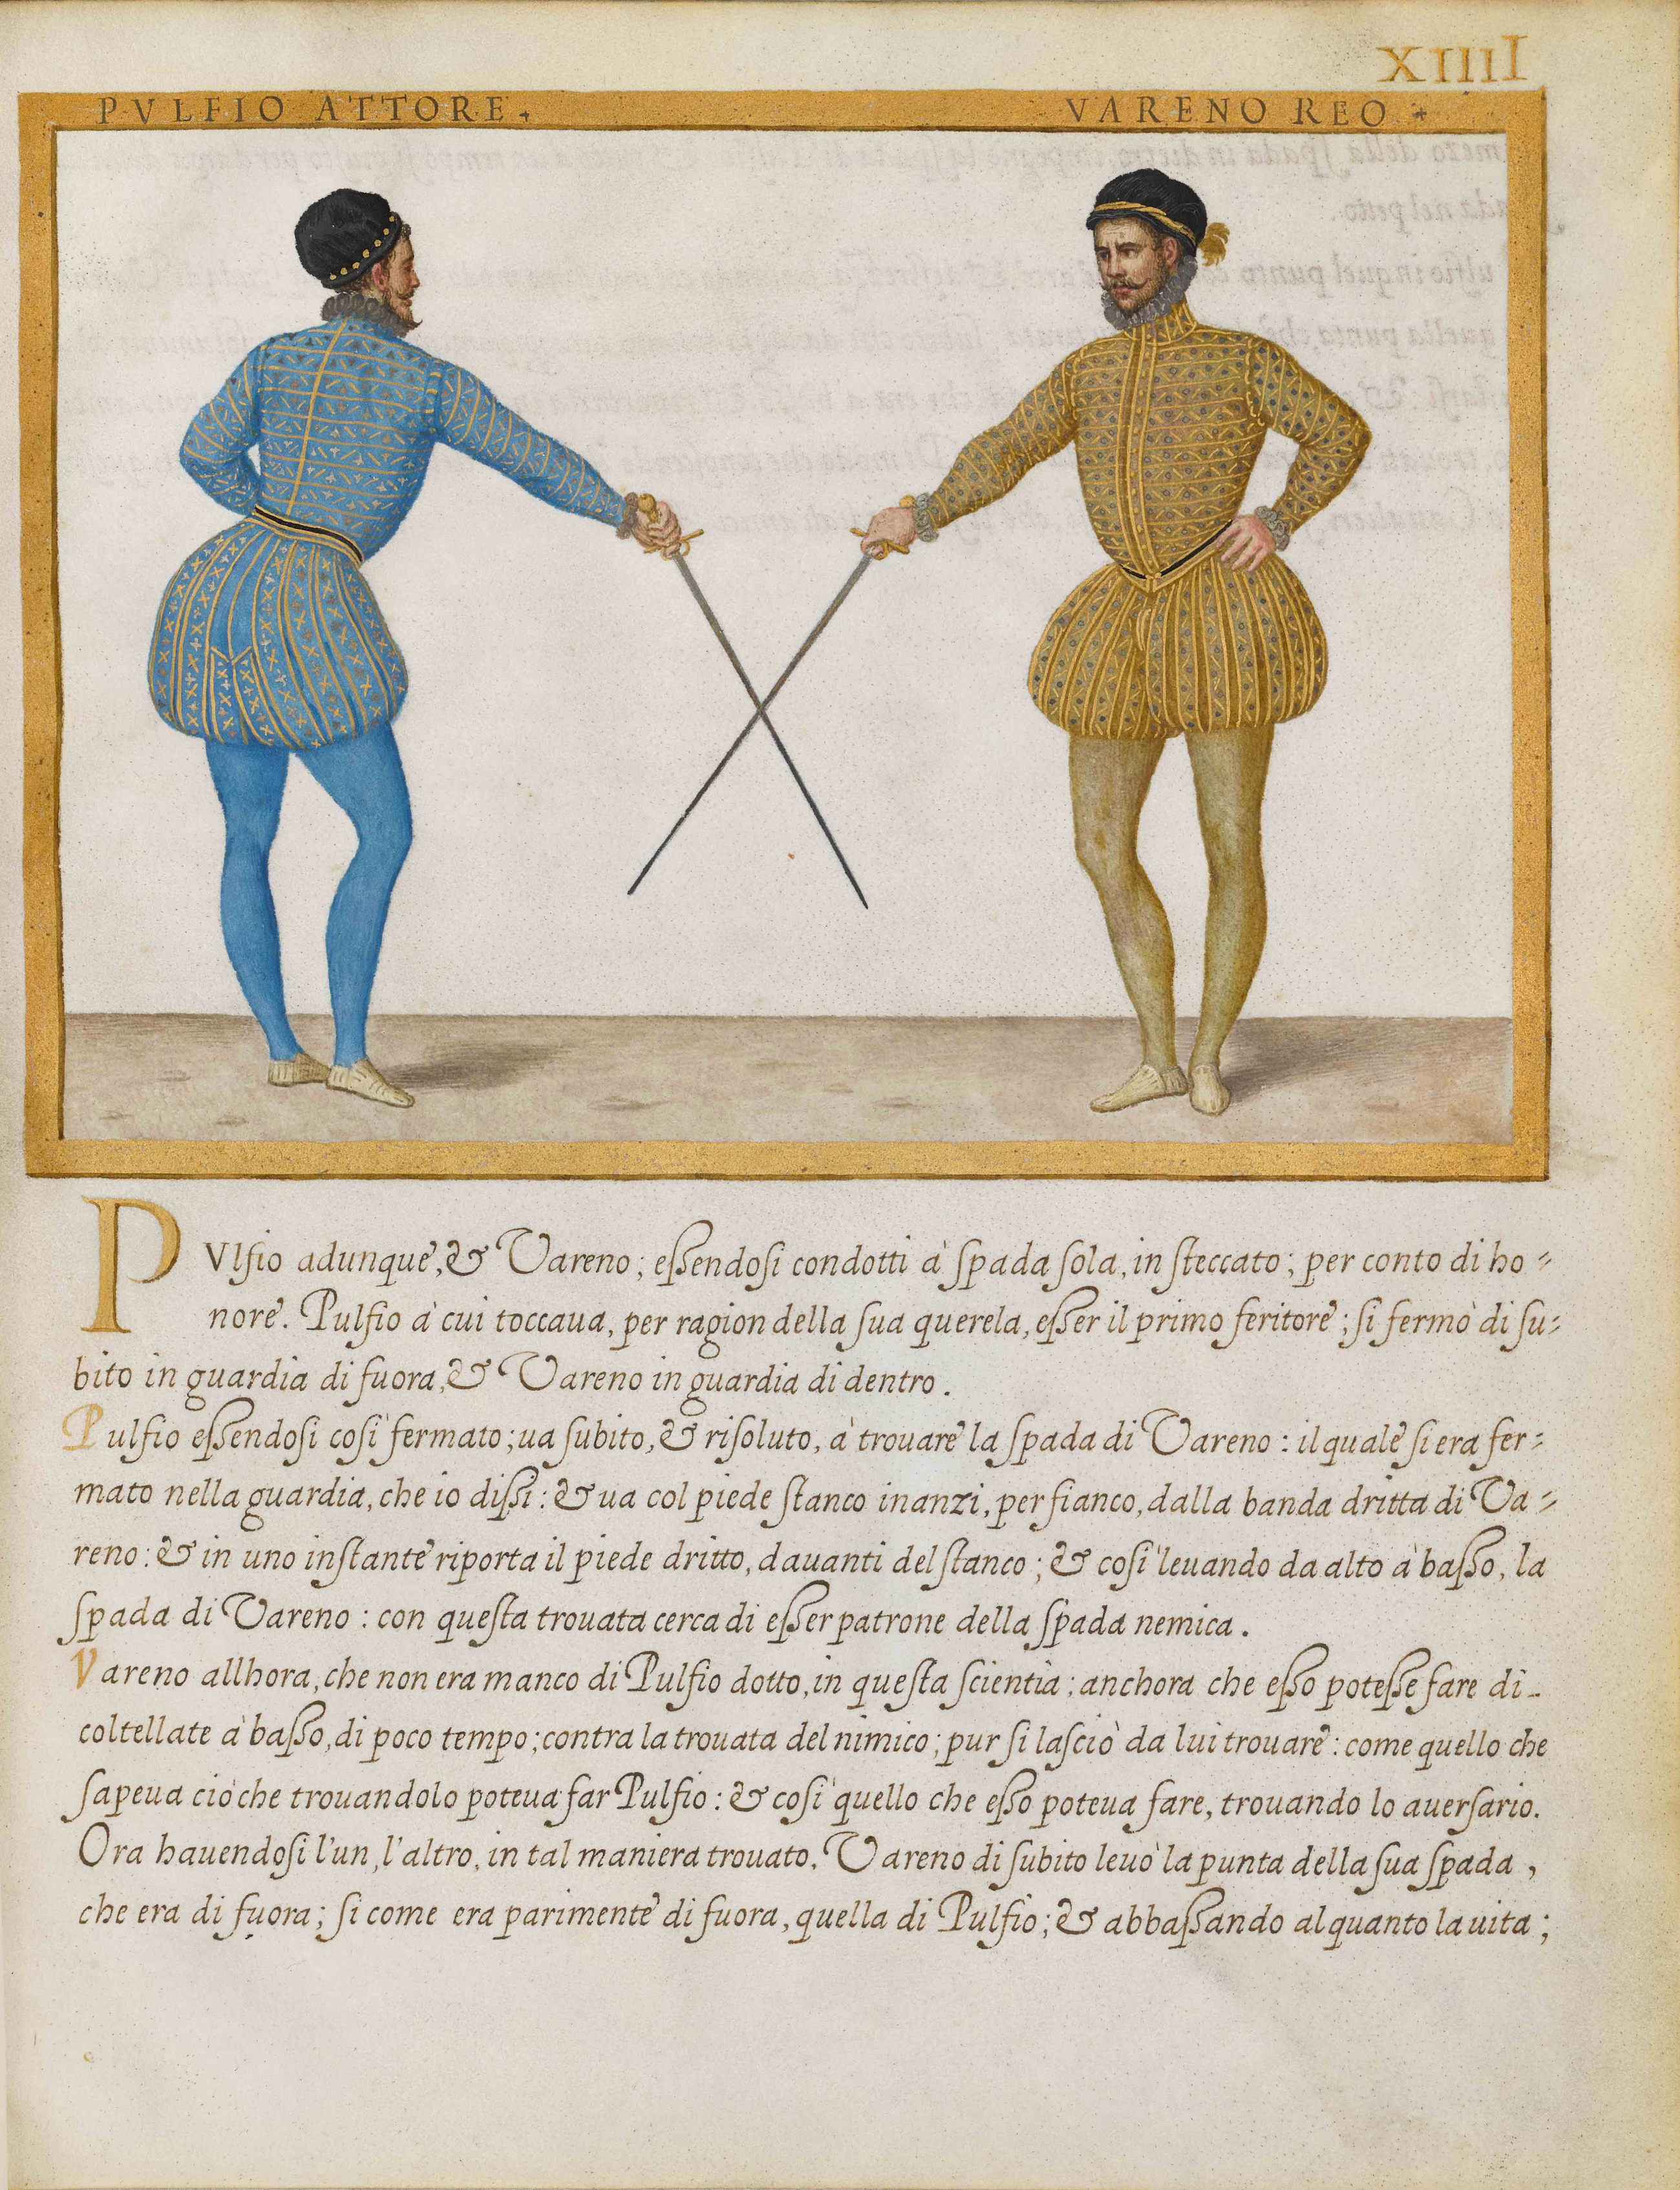 XIIII
PVLFIO ATTORE. VARENO REO.
PVlfio adunque, & Vareno; eſſendoſi condotti à ſpada ſola, in ſteccato; per conto di ho=
nore. Pulfio à cui toccaua, per ragion della ſua querela, eſſer il primo feritore; ſi fermò di ſu=
bito in guardia di fuora, & Vareno in guardia di dentro.
Pulfio eſſendoſi coſi fermato; ua ſubito, & riſoluto, à trouare la ſpada di Vareno: il quale ſi era fer=
mato nella guardia, che io diſſi: & ua col piede ſtanco inanzi, per fianco, dalla banda dritta di Va=
reno: & in uno inſtante riporta il piede dritto, dauanti del ſtanco; & coſi leuando da alto à baſſo, la
ſpada di Vareno: con queſta trouata cerca di eſſer patrone della ſpada nemica.
Vareno allhora, che non era manco di Pulfio dotto, in queſta ſcientia; anchora che eſſo poteſſe fare di-
coltellate à baſſo, di poco tempo; contra la trouata del nimico; pur ſi laſciò da lui trouare: come quello che
ſapeua ciò che trouandolo poteua far Pulfio: & coſi quello che eſſo poteua fare, trouando lo auerſario.
Ora hauendoſi l'un, l'altro, in tal maniera trouato. Vareno di ſubito leuò la punta della ſua ſpada,
che era di fuora; ſi come era parimente di fuora, quella di Pulfio; & abbaſſando alquanto la uita;